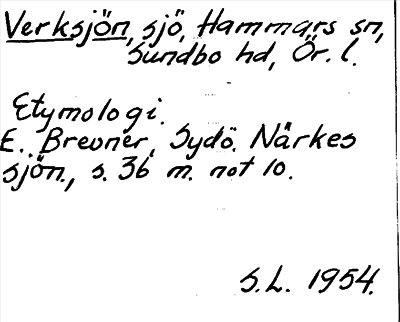 Verksjön, sjö, Hammars sn,
Sundbo hd, Ör. l.
Etymologi.
E. Brevner, Sydö. Närkes
sjön., s. 36 m. not 10.
S.L. 1954.